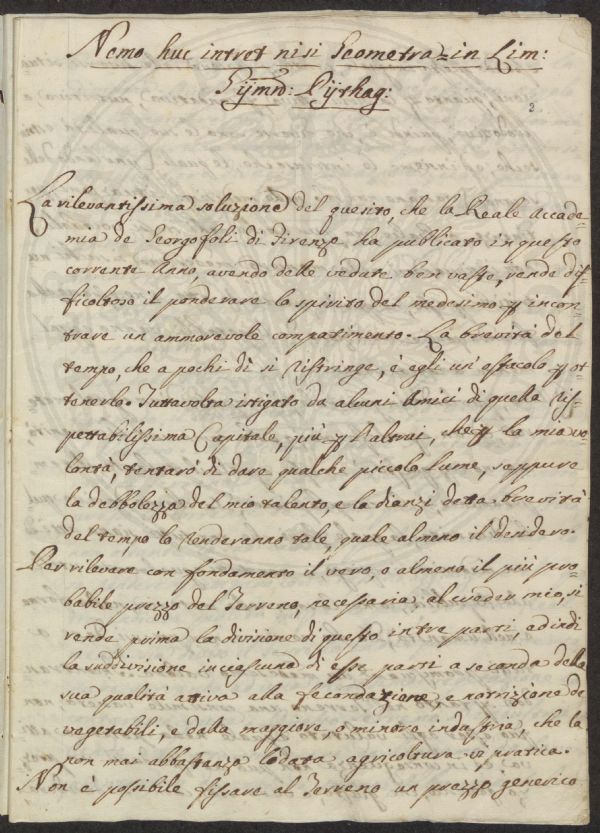 Nemo huc intret nisi Geometra = in Lim:
Gÿmn: Pÿthag:
2
La rilevantissima soluzione del quesito, che la Reale Accade=
mia de Georgofoli di Firenze ha publicato in questo
corrente Anno, avendo delle vedute ben vaste, rende dif=
ficoltoso il ponderare lo spirito del medesimo, p incon=
trare un ammorevole compatimento. La brevità del
tempo, che a pochi dì si ristringe, è egli un' ostacolo p ot=
tenerlo. Tuttavolta istigato da alcuni Amici di quella Ris=
pettabilissima Capitale, più p l'altrui, che p la mia vo=
lontà, tentarò di dare qualche piccolo lume, seppure
la debbolezza del mio talento, e la dianzi detta brevità
del tempo lo renderanno tale, quale almeno il desidero.
Per rilevare con fondamento il vero, o almeno il più pro=
babile prezzo del Terreno, necessaria, al creder mio, si
rende prima la divisione di questo in tre parti, ed indi
la suddivisione in ciascuna di esse parti a seconda della
sua qualità attiva alla fecondazione, e notrizione de
vegetabili, e dalla maggiore, o minore industria, che la
non mai abbastanza lodata agricoltura vi pratica.
Non è possibile fissare al Terreno un prezzo generico